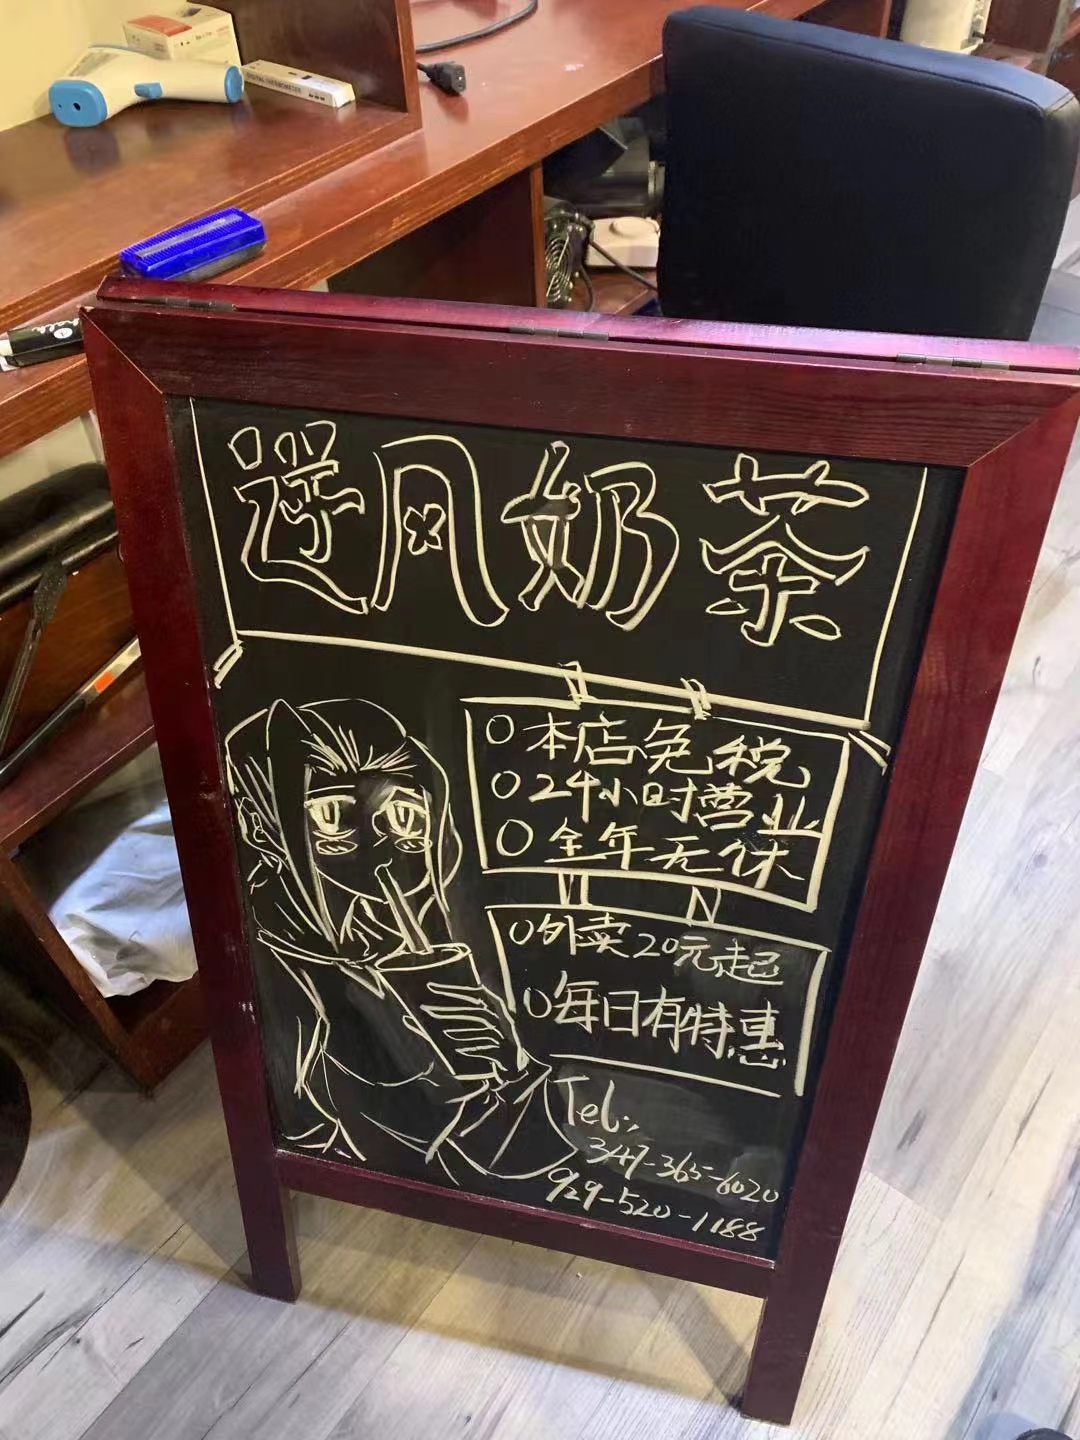 DIGITAL THERMOMETER
风奶茶
本店免税
24小时营业
全年无休
外卖20元起
每日有特惠
Tel:
347-365-6020
929-520-1188